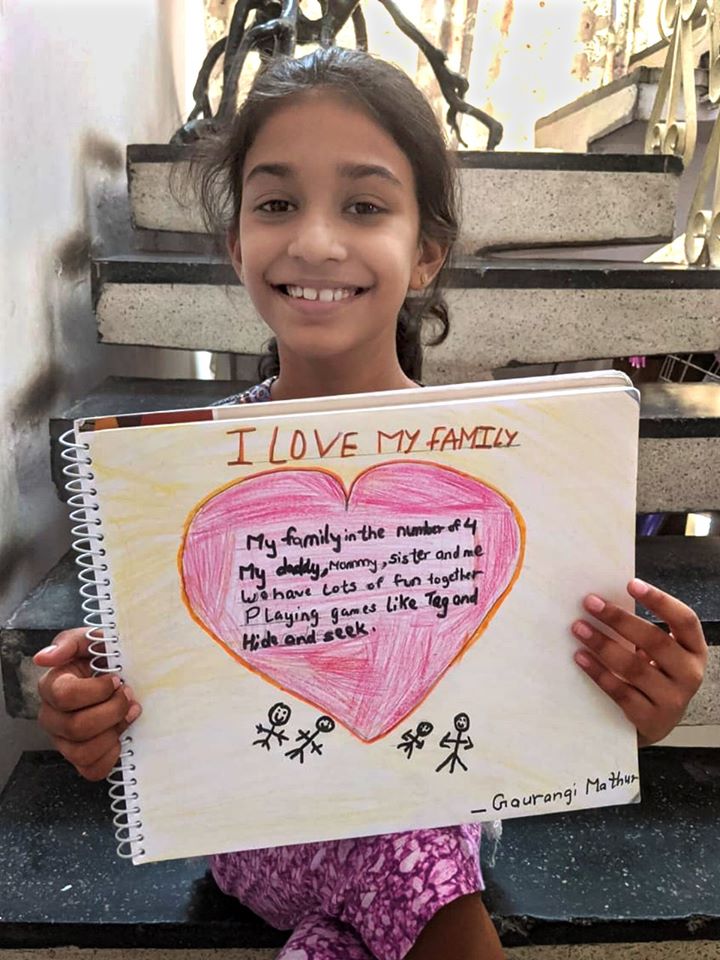 I LOVE MY FAMILY
My family in the number of 4
My daddy, Mommy, sister and me
we have Lots of fun together
PLaying games Like Tag and
Hide and seek.
_ Gaurangi Mathur